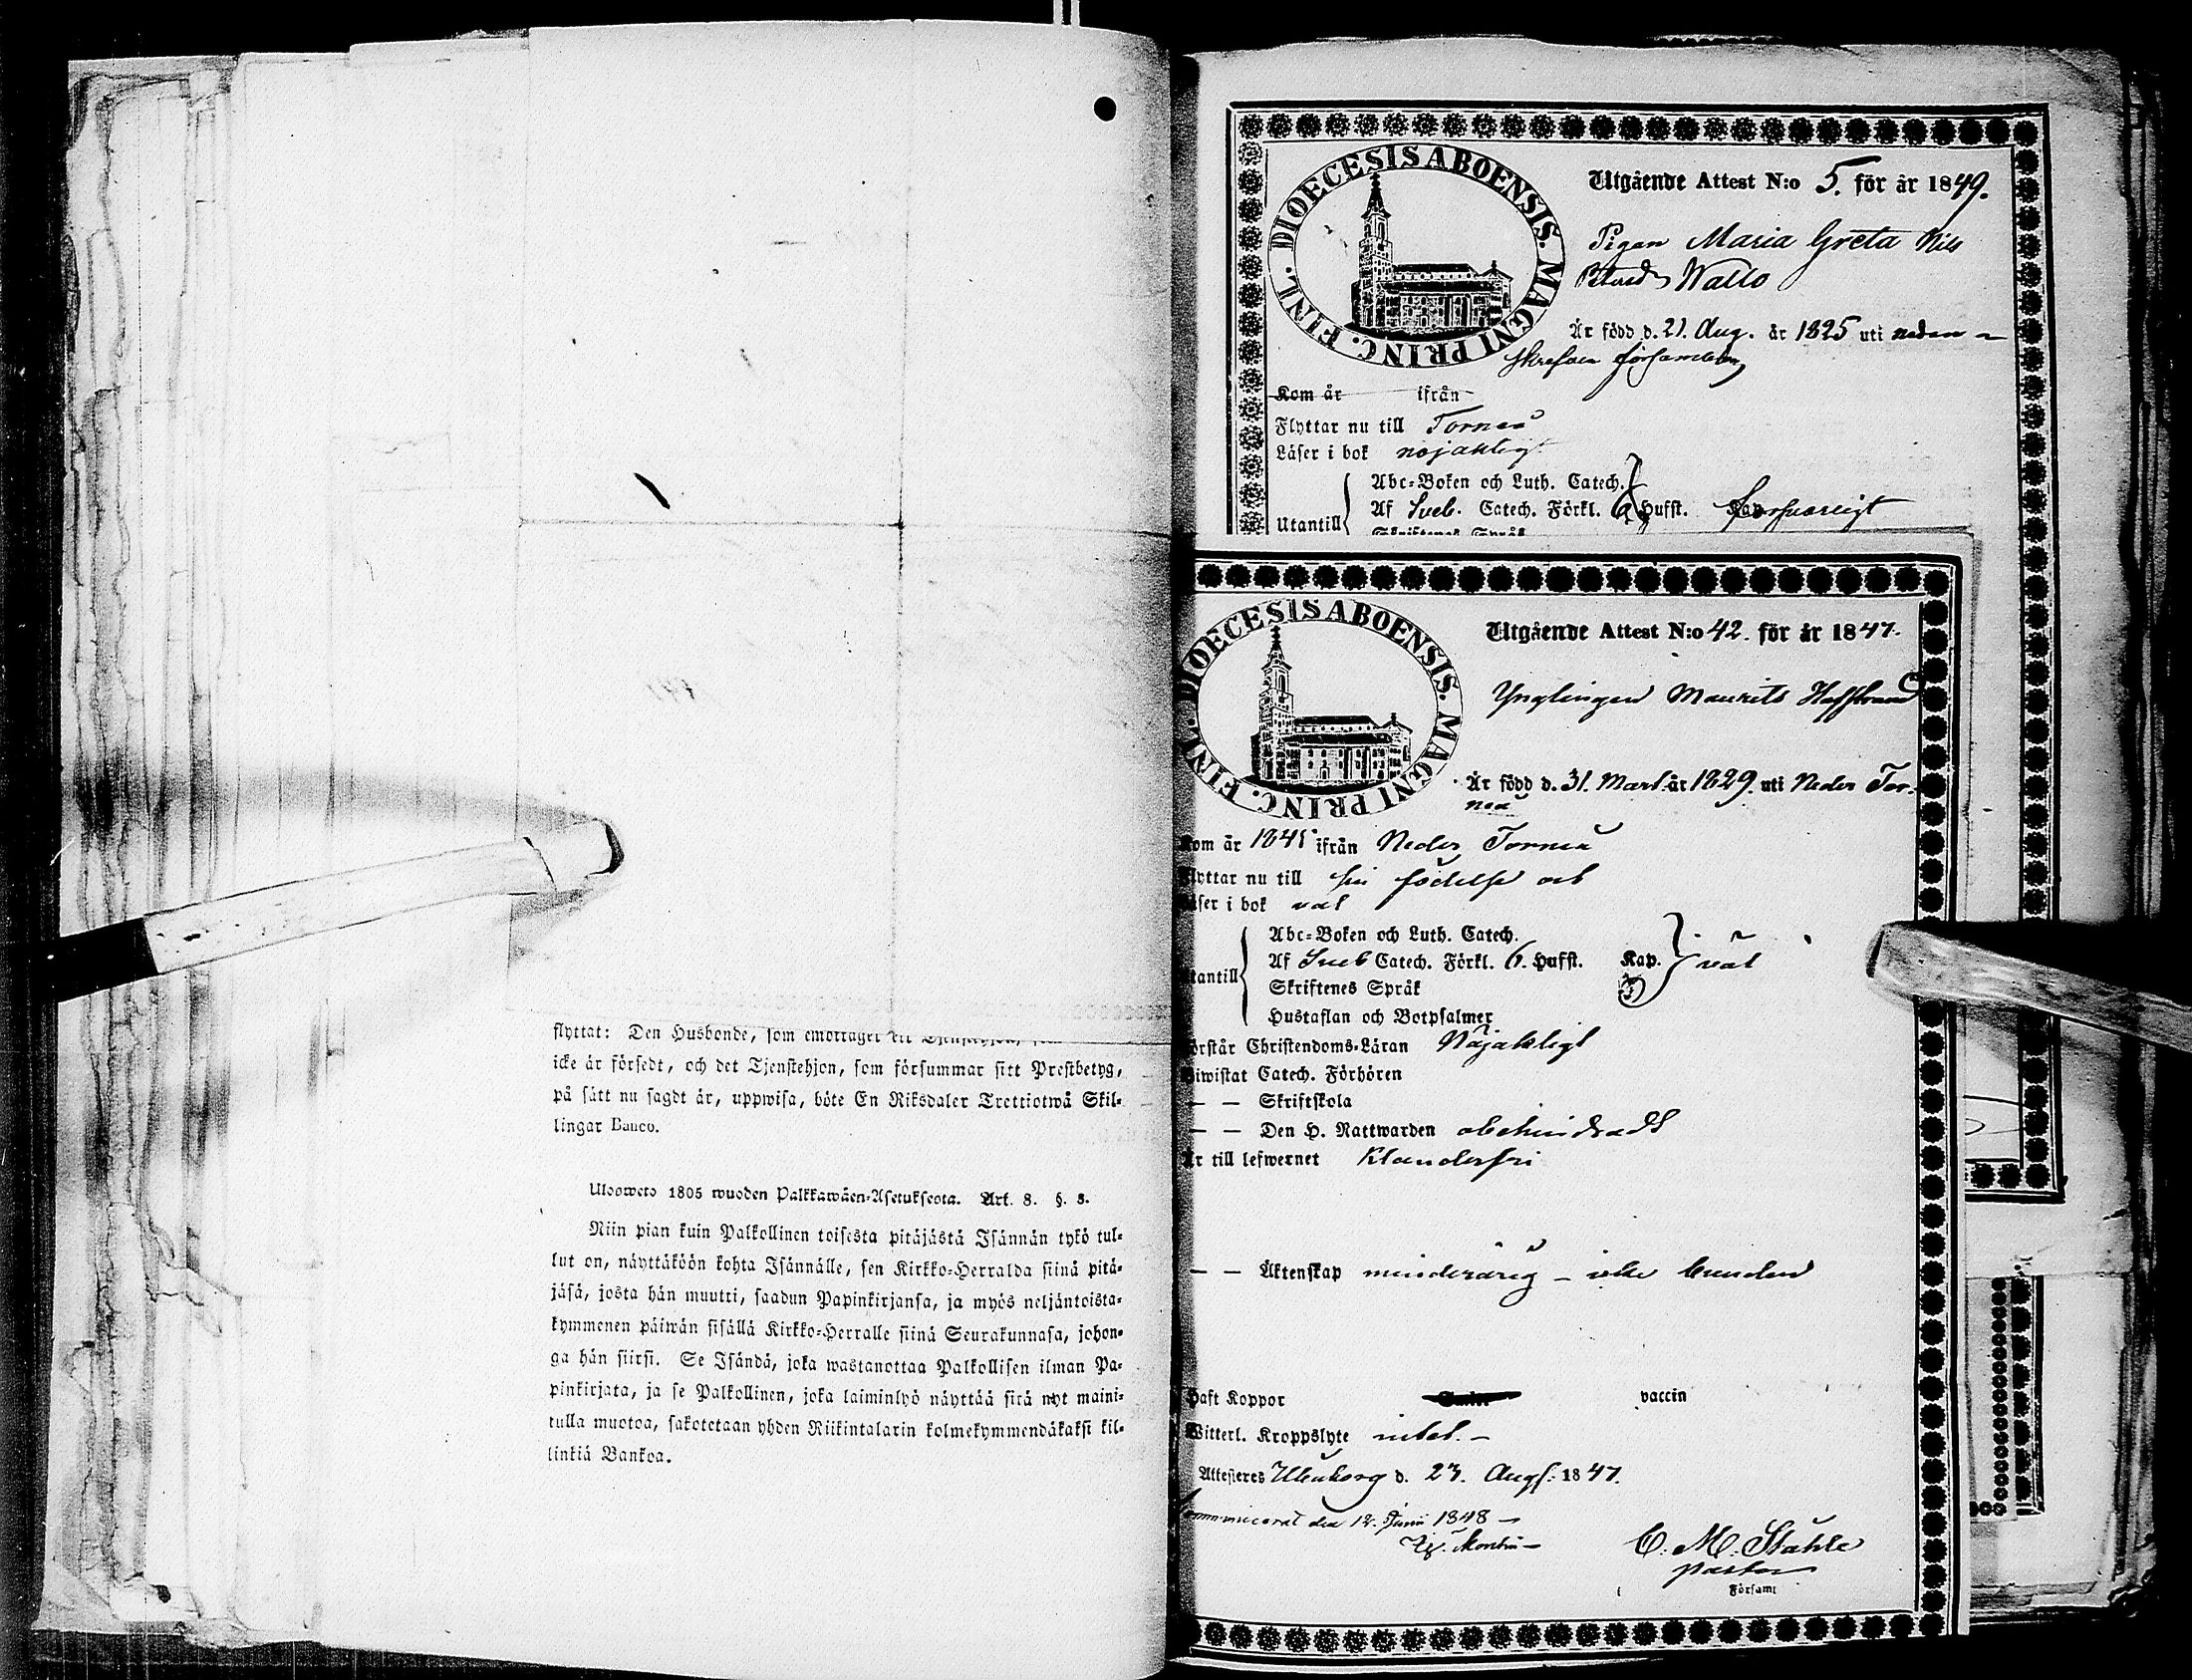 flyttat: Den Husbonde, som emottaget ett
icke är försedt, och det Tjenstehjon, som försummar sitt Prestbetyg,
på sätt nu sagdt är, uppwisa, böte En Riksdaler Trettiotwå Skil-
lingar Banco.
Ulosweto 1805 wuoden Palkkawäen-Asetuksesta. Art. 8. §. 8.
Niin pian kuin Palkollinen toisesta pitäjästä Isännän tykö tul-
lut on, näyttäköön kohta Isännälle, sen Kirkko-Herralda siinä pitä-
jäsä, josta hän muutti, saadun Papinkirjansa, ja myös neljäntoista-
kymmenen päiwän sisällä Kirkko-Herralle siinä Seurakunnasa, johon-
ga hän siirsi. Se Isändä, joka wastanottaa Palkollisen ilman Pa-
pinkirjata, ja se Palkollinen, joka laiminlyö näyttää sitä nyt maini-
tulla muotoa, sakotetaan yhden Riikintalarin kolmekymmendäkaksi kil-
linkiä Bankoa.
DIOECESIS ABOENSIS. MAGNI PRINC. FINL.
Utgående Attest N:o 5. för år 1849.
Pigan Maria Greta Nils
Wallo
Är född d. 21. Aug. år 1825 uti nedan-
skrefven församling
Kom år ifrån
Flyttar nu till Torneå
Läser i bok nöjaktigt
Utantill
Abc-Boken och Luth. Catech.
Af Sveb. Catech. Förkl. 6 Hufst. Kap. försvarligt
Skriftenes Språk
DIOECESIS ABOENSIS. MAGNI PRINC. FINL.
Utgående Attest N:o 42. för år 1847.
Ynglingen Maurits
Är född d. 31. Mart. år 1829. uti Neder Tor-
neå
Kom år 1845 ifrån Neder Torneå
Flyttar nu till sin födelse ort
Läser i bok väl
Utantill
Abc-Boken och Luth. Catech.
Af Sveb Catech. Förkl. 6. Hufst. Kap. väl
Skriftenes Språk
Hustaflan och Botpsalmer
Förstår Christendoms-Läran Nöjaktigt
Biwistat Catech. Förhören
— — Skriftskola
— — Den H. Nattwarden obehindradt
Är till lefwernet Klanderfri
— — Äktenskap minderårig – icke bunden
Haft Koppor vaccin
Witterl. Kroppslyte intet. –
Attesteres Uleåborg d. 23. Aug. 1847.
Communicerat den 12. Junii 1848 –
C. M. Ståhle
Pastor
Församl